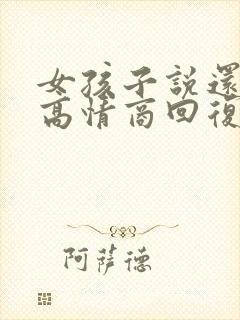 女孩子說還
高情商回復
阿薩德